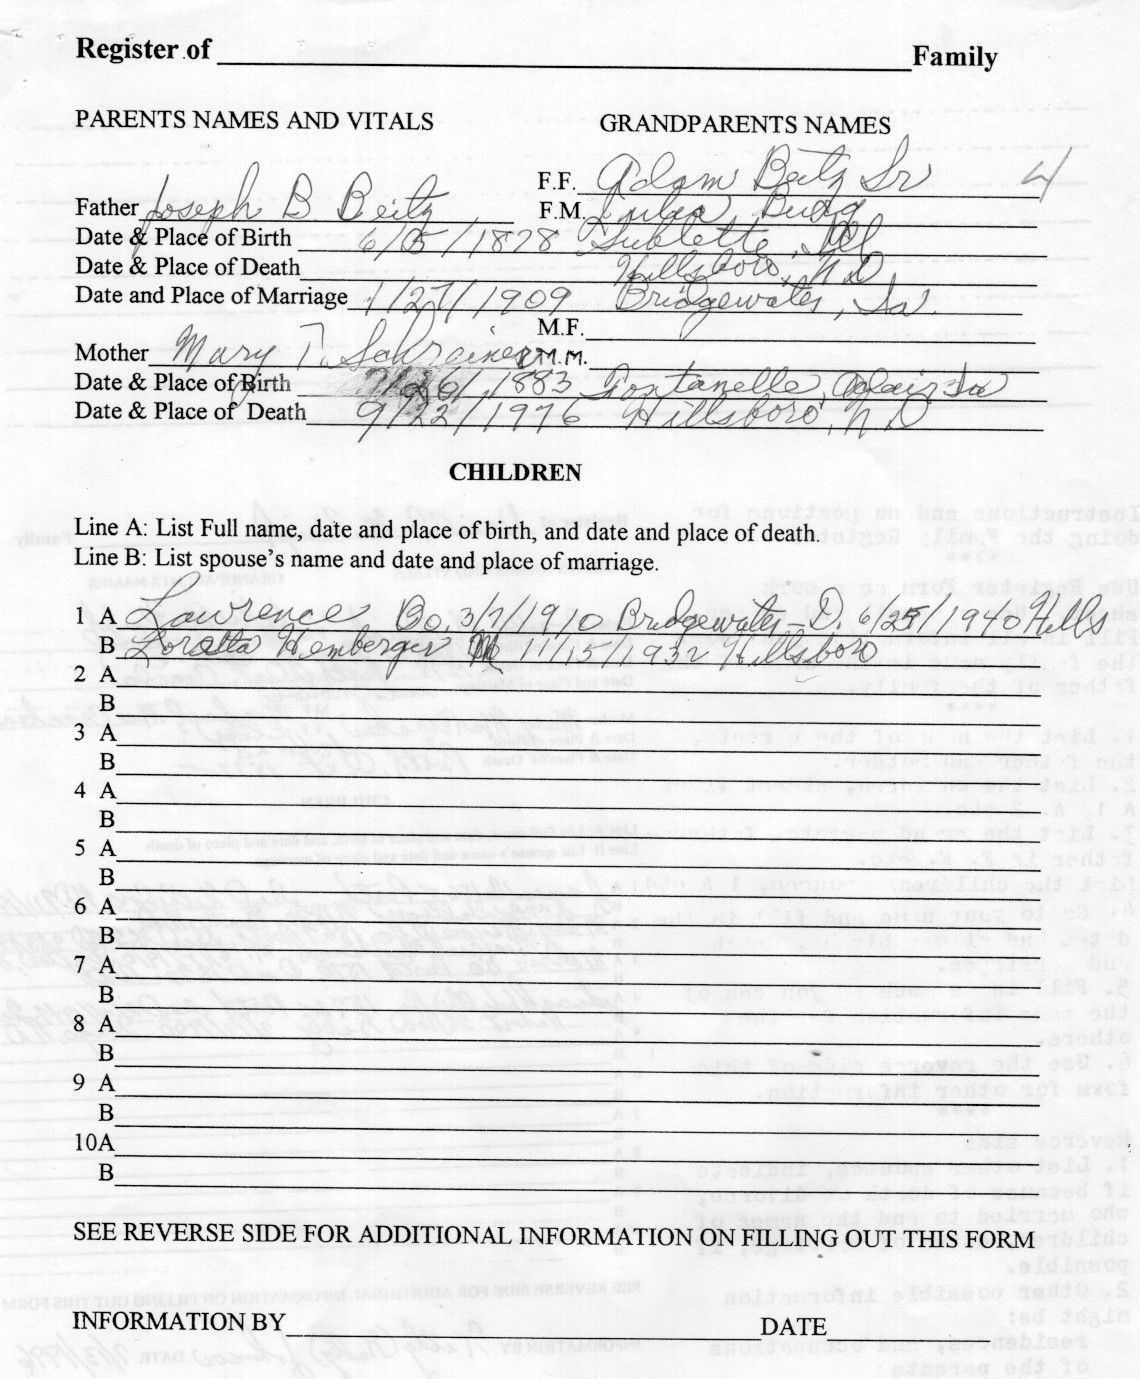 Register of Family
PARENTS NAMES AND VITALS GRANDPARENTS NAMES
F.F. Adam Beitz Sr 4
Father Joseph B Beitz F.M.
Date & Place of Birth 6/ /1878 Sublette, Ill
Date & Place of Death Hillsboro, N.D
Date and Place of Marriage 1/27/1909 Bridgewater, Ia.
M.F.
Mother Mary T. Schrainer M.M.
Date & Place of Birth /26/1883 Fontanelle, Adair Ia
Date & Place of Death 9/22/1976 Hillsboro, N.D
CHILDREN
Line A: List Full name, date and place of birth, and date and place of death.
Line B: List spouse's name and date and place of marriage.
1 A Lawrence Bo. 3/7/1910 Bridgewater - D. 6/25/1940 Hills
B Loretta Hemberger M 11/15/1932 Hillsboro
2 A
B
3 A
B
4 A
B
5 A
B
6 A
B
7 A
B
8 A
B
9 A
B
10A
B
SEE REVERSE SIDE FOR ADDITIONAL INFORMATION ON FILLING OUT THIS FORM
INFORMATION BY DATE